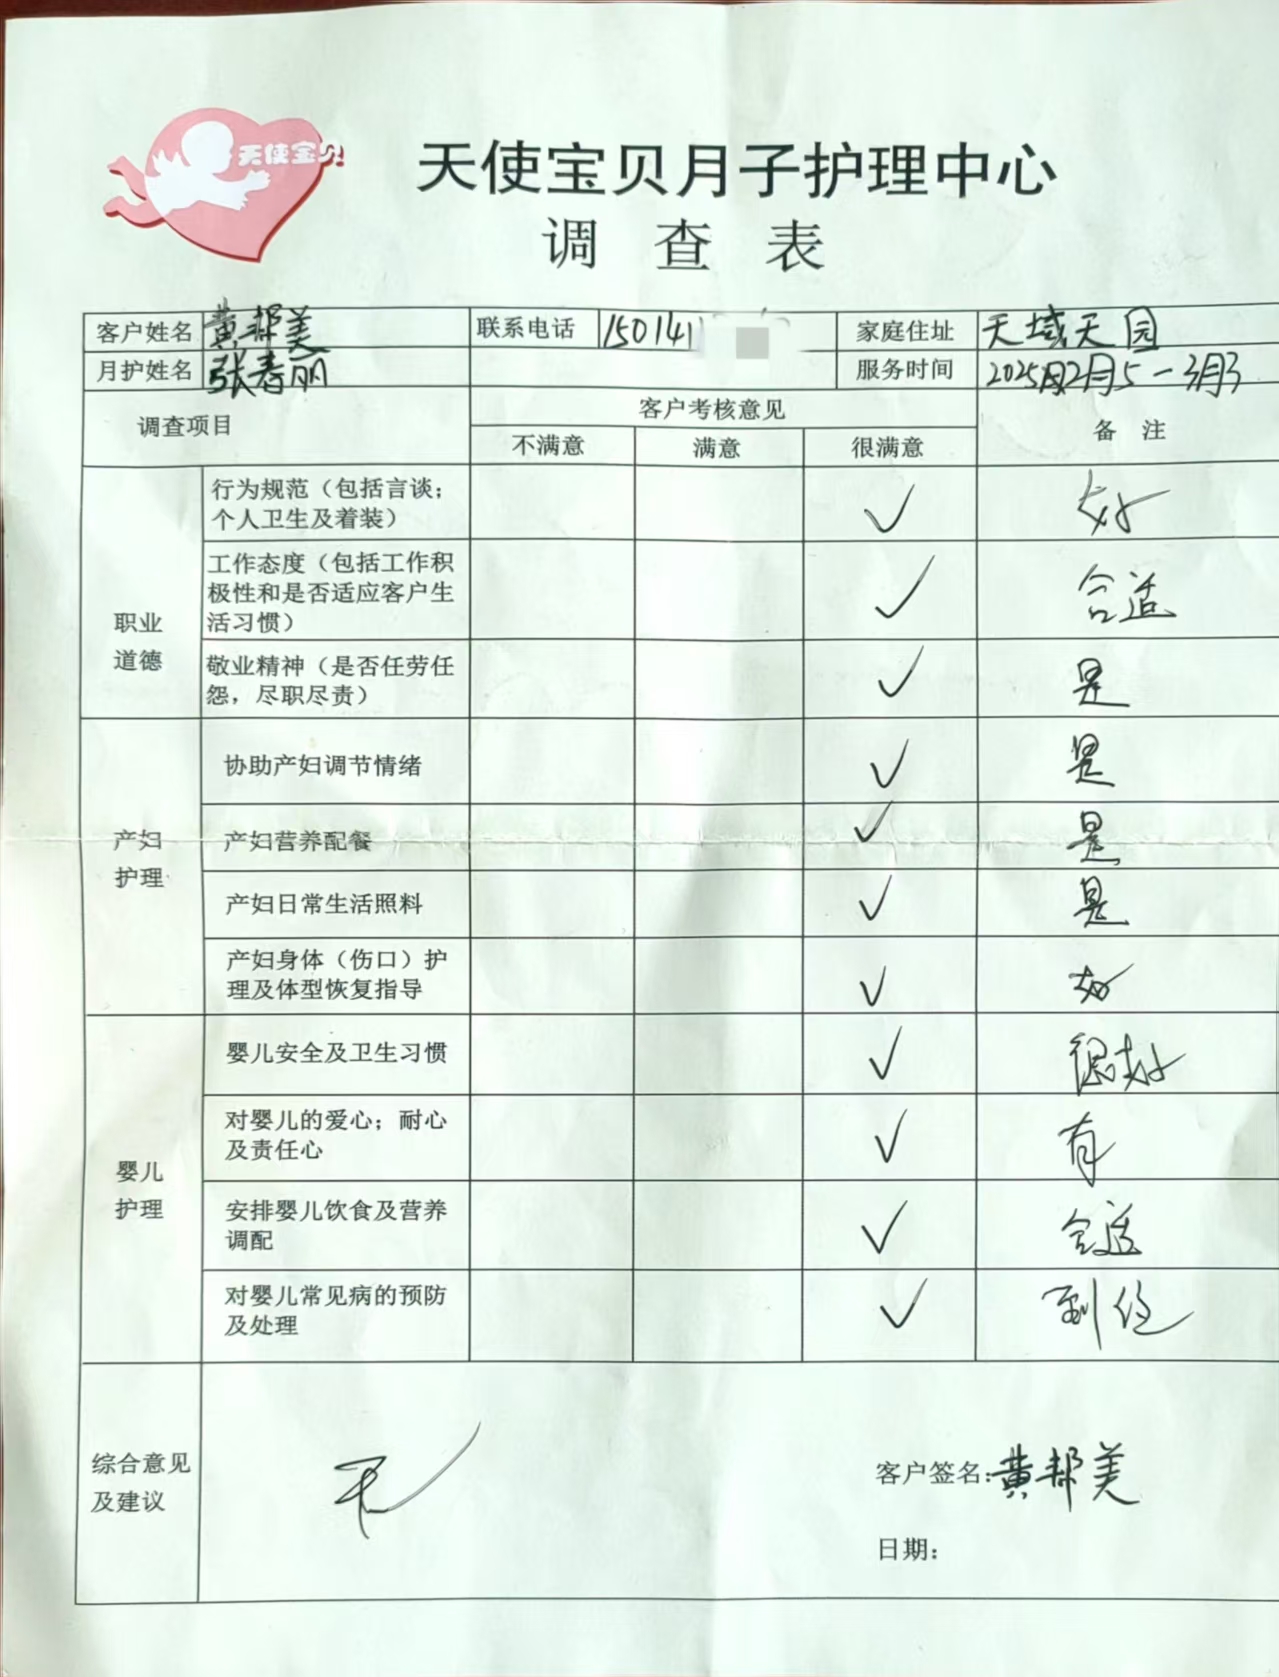 天使宝贝
天使宝贝月子护理中心
调 查 表
客户姓名 黄帮美 联系电话 150141 家庭住址 天域天园
月护姓名 张春丽 服务时间 2025年2月5-3月3
调查项目 客户考核意见 备 注
不满意 满意 很满意
职业
道德
行为规范（包括言谈；
个人卫生及着装） ✓ 好
工作态度（包括工作积
极性和是否适应客户生
活习惯） ✓ 合适
敬业精神（是否任劳任
怨，尽职尽责） ✓ 是
产妇
护理
协助产妇调节情绪 ✓ 是
产妇营养配餐 ✓ 是
产妇日常生活照料 ✓ 是
产妇身体（伤口）护
理及体型恢复指导 ✓ 好
婴儿
护理
婴儿安全及卫生习惯 ✓ 很好
对婴儿的爱心；耐心
及责任心 ✓ 有
安排婴儿饮食及营养
调配 ✓ 合适
对婴儿常见病的预防
及处理 ✓ 到位
综合意见
及建议
无
客户签名：黄帮美
日期：